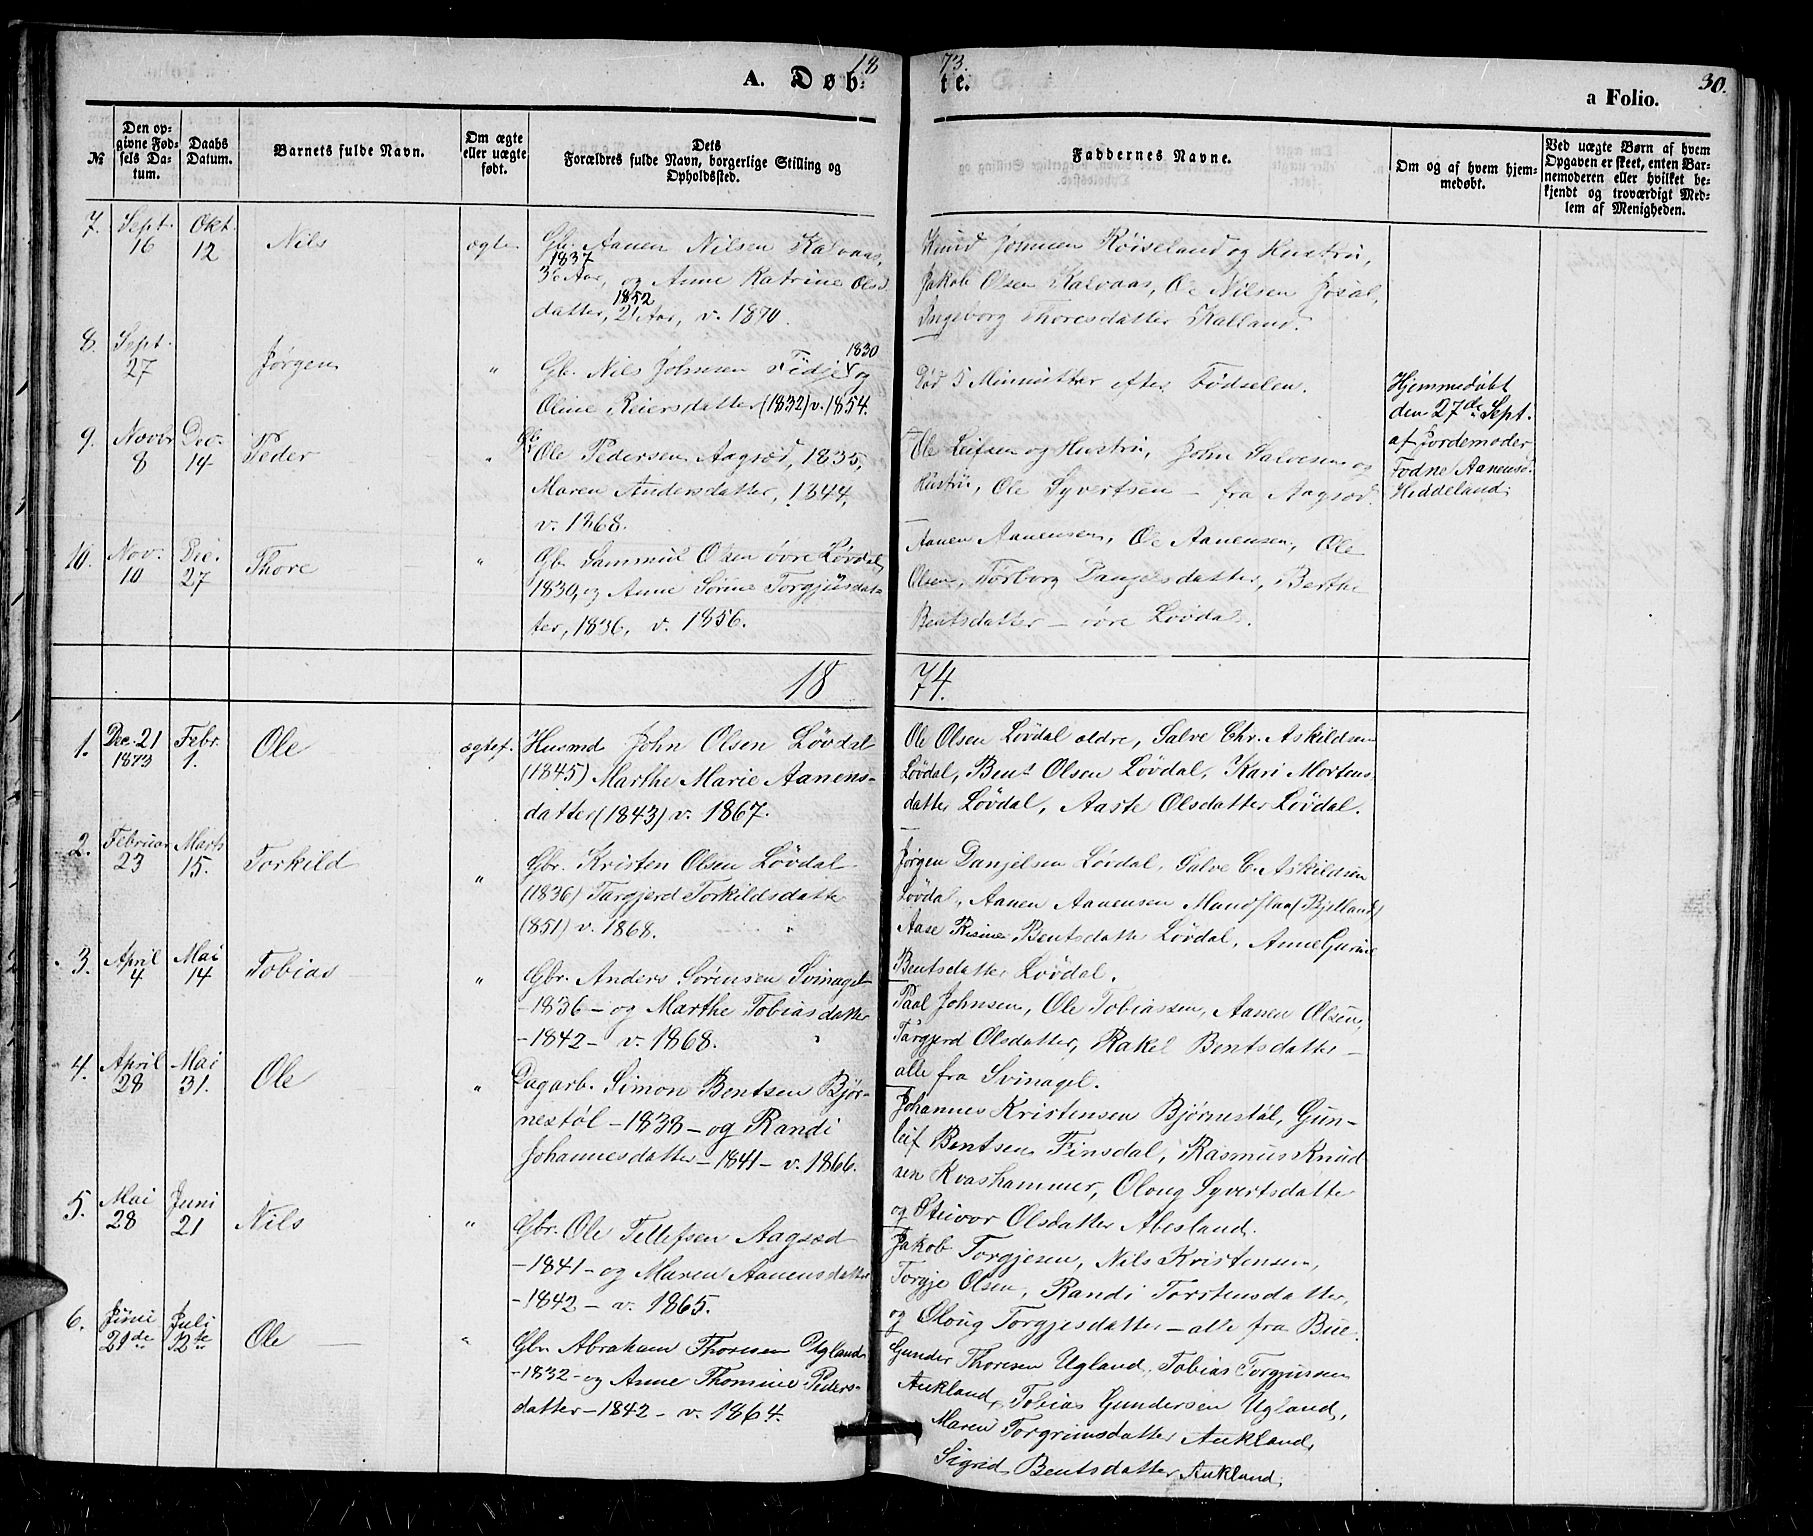 18
73.
A. Døb-
te.
a Folio.
30.
№
Den op-
givne Fød-
sels Da-
tum.
Daabs
Datum.
Barnets fulde Navn.
Om ægte
eller uægte
født.
Dets
Forældres fulde Navn, borgerlige Stilling og
Opholdssted.
Faddernes Navne.
Om og af hvem hjem-
medøbt.
Ved uægte Børn af hvem
Opgaven er skeet, enten Bar-
nemoderen eller hvilket be-
kjendt og troværdigt Med-
lem af Menigheden.
7. Sept. 16 Okt. 12 Nils ægte
Gb. Aanen Nilsen Kalvaas,
1837
Aar, og Anne Katrine Ols-
1852
datter, 21 Aar, v. 1870.
Knud Johnsen Röiseland og Hustru,
Jakob Olsen Kalvaas, Ole Nilsen Josal,
Ingeborg Thoresdatter Kalland.
8. Sept. 27 Jørgen "
1830
Gb. Nils Johnsen Tidje og
Oline Reiersdatter (1832) v. 1854.
Død 5 Minutter efter Fødselen.
Hjemmedöbt
den 27de Sept.
af Jordemoder
Todne Aanensd.
Hiddeland.
9. Novbr 8 Dec. 14 Peder "
Gb.
Ole Pedersen Aagsæd, 1835,
Maren Andersdatter, 1844,
v. 1868.
Ole Leifsen og Hustru, John Salvesen og
Hustru, Ole Syvertsen – fra Aagsæd.
10. Nov. 10 Dec. 27 Thore "
Gb. Sammuel Olsen övre Løvdal,
1830, og Anne Sörine Torgjusdat-
ter, 1836, v. 1856.
Aanen Aanensen, Ole Aanensen, Ole
Olsen, Torborg Danjelsdatter, Berthe
Bentsdatter – övre Løvdal.
18
74.
1. Dec. 21 1873 Febr. 1. Ole ægtef.
Husmd John Olsen Løvdal
(1845) Marthe Marie Aanens-
datter (1843) v. 1867.
Ole Olsen Løvdal ældre, Salve Chr. Askildsen
Løvdal, Bent Olsen Løvdal, Kari Mortens-
datter Løvdal, Aaste Olsdatter Løvdal.
2. Februar 23 Marts 15. Torkild "
Gbr. Kristen Olsen Løvdal
(1836) Targjerd Torkildsdatter
(851) v. 1868.
Jørgen Danjelsen Løvdal, Salve C. Askildsen
Løvdal, Aanen Aanensen Mundflaa (Bjelland)
Aase Risine Bentsdatter Løvdal, Anne Gurine
Bentsdatter Løvdal.
3. April 4 Mai 14 Tobias "
Gbr. Anders Sørensen Svinagel
–1836– og Marthe Tobiasdatter
–1842– v. 1868.
Paal Johnsen, Ole Tobiassen, Aanen Olsen,
Targjerd Olsdatter, Rakel Bentsdatter –
alle fra Svinagel.
4. April 28 Mai 31. Ole "
Dagarb. Simon Bentsen Bjør-
nestøl –1838– og Randi
Johannesdatter –1841– v. 1866.
Johannes Kristensen Bjørnestøl, Gun-
leif Bentsen Finsdal, Rasmus Knud-
sen Kvashammer, Oloug Syvertsdatter
og Steivor Olsdatter Abesland.
5. Mai 28 Juni 21 Nils "
Gbr. Ole Tellefsen Aagsæd
–1841– og Maren Aanensdatter
–1842– v. 1865.
Jakob Torgjesen, Nils Kristensen,
Torgje Olsen, Randi Torstensdatter,
og Oloug Torgjesdatter – alle fra Bue.
6. Juni 21de Juli 12te Ole "
Gbr. Abraham Thoresen Ugland
–1832– og Anne Thomine Peders-
datter –1842– v. 1864.
Gunder Thoresen Ugland, Tobias Torgjusen
Aukland, Tobias Gundersen Ugland,
Maren Torgrimsdatter Aukland,
Sigrid Bentsdatter Aukland.